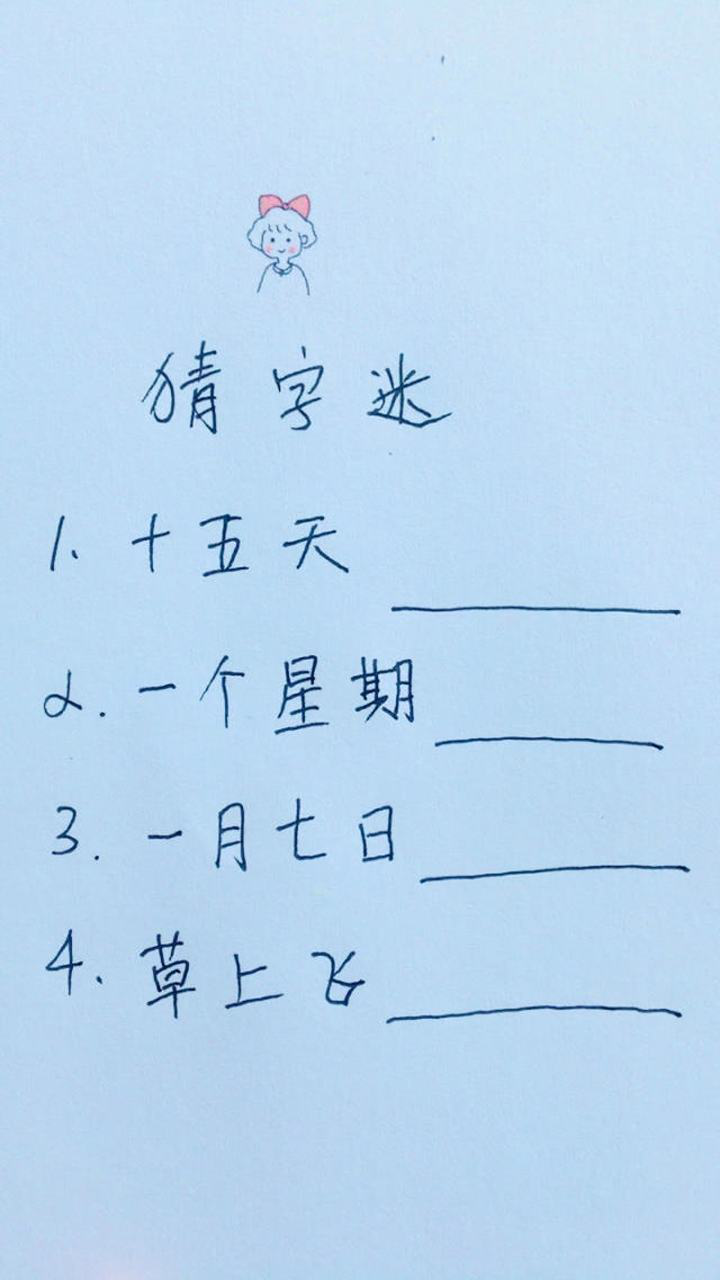 猜字迷
1. 十五天
2. 一个星期
3. 一月七日
4. 草上飞